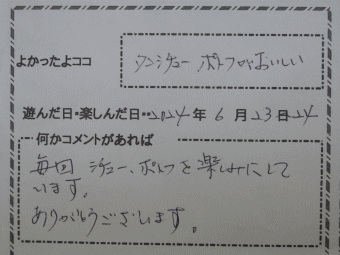 よかったよココ
シチュー ポトフがおいしい
遊んだ日・楽しんだ日・・2024年 6月23日 24
何かコメントがあれば
毎回 シチュー、ポトフを楽しみにして
います。
ありがとうございます。